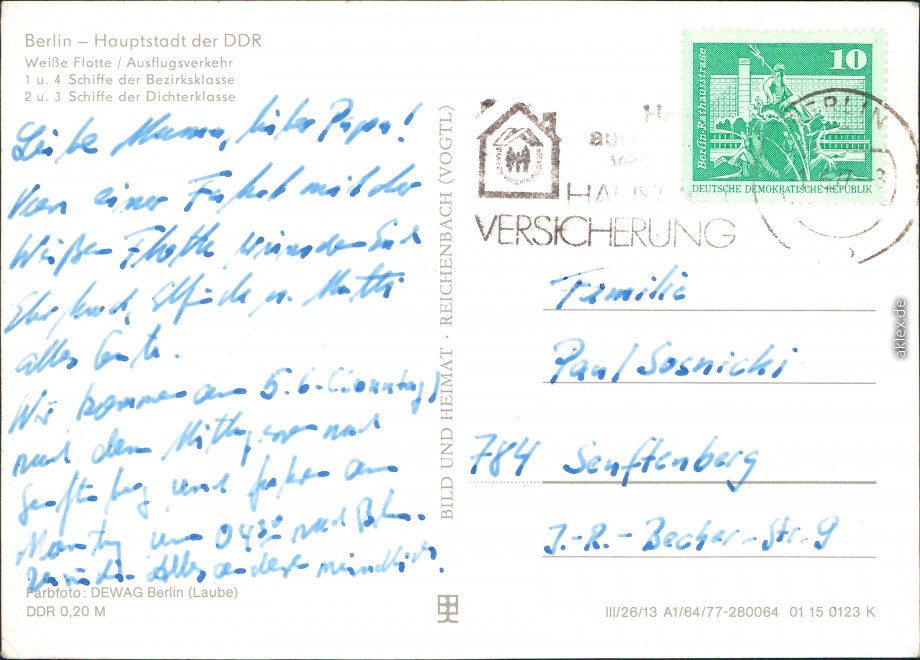 Berlin – Hauptstadt der DDR
Weiße Flotte / Ausflugsverkehr
1 u. 4 Schiffe der Bezirksklasse
2 u. 3 Schiffe der Dichterklasse
Liebe Mama, lieber Papa!
Von einer Fahrt mit der
Weißen Flotte wünschen Euch
u. Mutti
alles Gute.
Wir kommen am 5.6. (Sonntag)
nach dem Mittagessen nach
Senftenberg und fahren am
Montag um 04³⁰ nach Bln.
zurück. Alles andere mündlich.
Farbfoto: DEWAG Berlin (Laube)
DDR 0,20 M
BILD UND HEIMAT · REICHENBACH (VOGTL)
HAUS
VERSICHERUNG
BERLIN
10
Berlin-Rathausstraße
DEUTSCHE DEMOKRATISCHE REPUBLIK
Familie
Paul Sosnicki
784 Senftenberg
J.-R.-Becher-Str. 9
III/26/13 A1/64/77-280064 01 15 0123 K
aklex.de